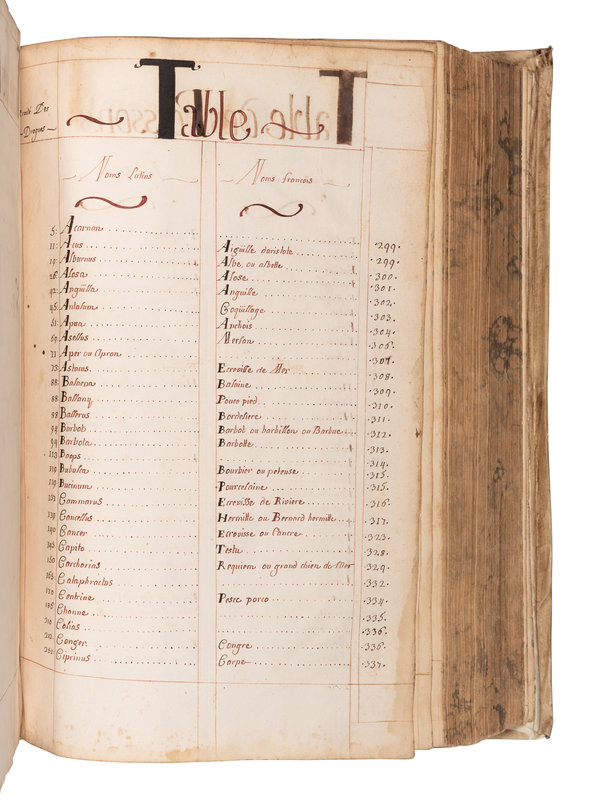 Des
Drogues
Table
Noms Latins Noms francois
Acarnon 299
Acus Aigüille daristote 299
Alburnus Albe ou ablette 300
Alosa Alose 301
Angüilla Anguille 302
Antalium Coqüillage 303
Apua Anchois 304
Asellus Merlan 306
Aper ou Apron 307
Astacus Ecrevisse de Mer 308
Balaena Balaine 309
Ballany Pouce pied 310
Ballerus Bordeliere 311
Barbot Barbot ou barbillon ou Barbue 312
Barbota Barbotte 313
Boops 314
Bubulca Bourbier ou peteuse 315
Bucinum Pourcelaine 315
Cammarus Ecrevisse de Riviere 316
Cancellus Hermille ou Bernard hermille 317
Cancer Ecrevisse ou Cancre 323
Capito Testu 328
Carcharias Requiem ou grand chien de Mer 329
Cataphractus 332
Centrine Pesce porco 334
Channe 335
Colias 336
Conger Congre 336
Ciprinus Carpe 337